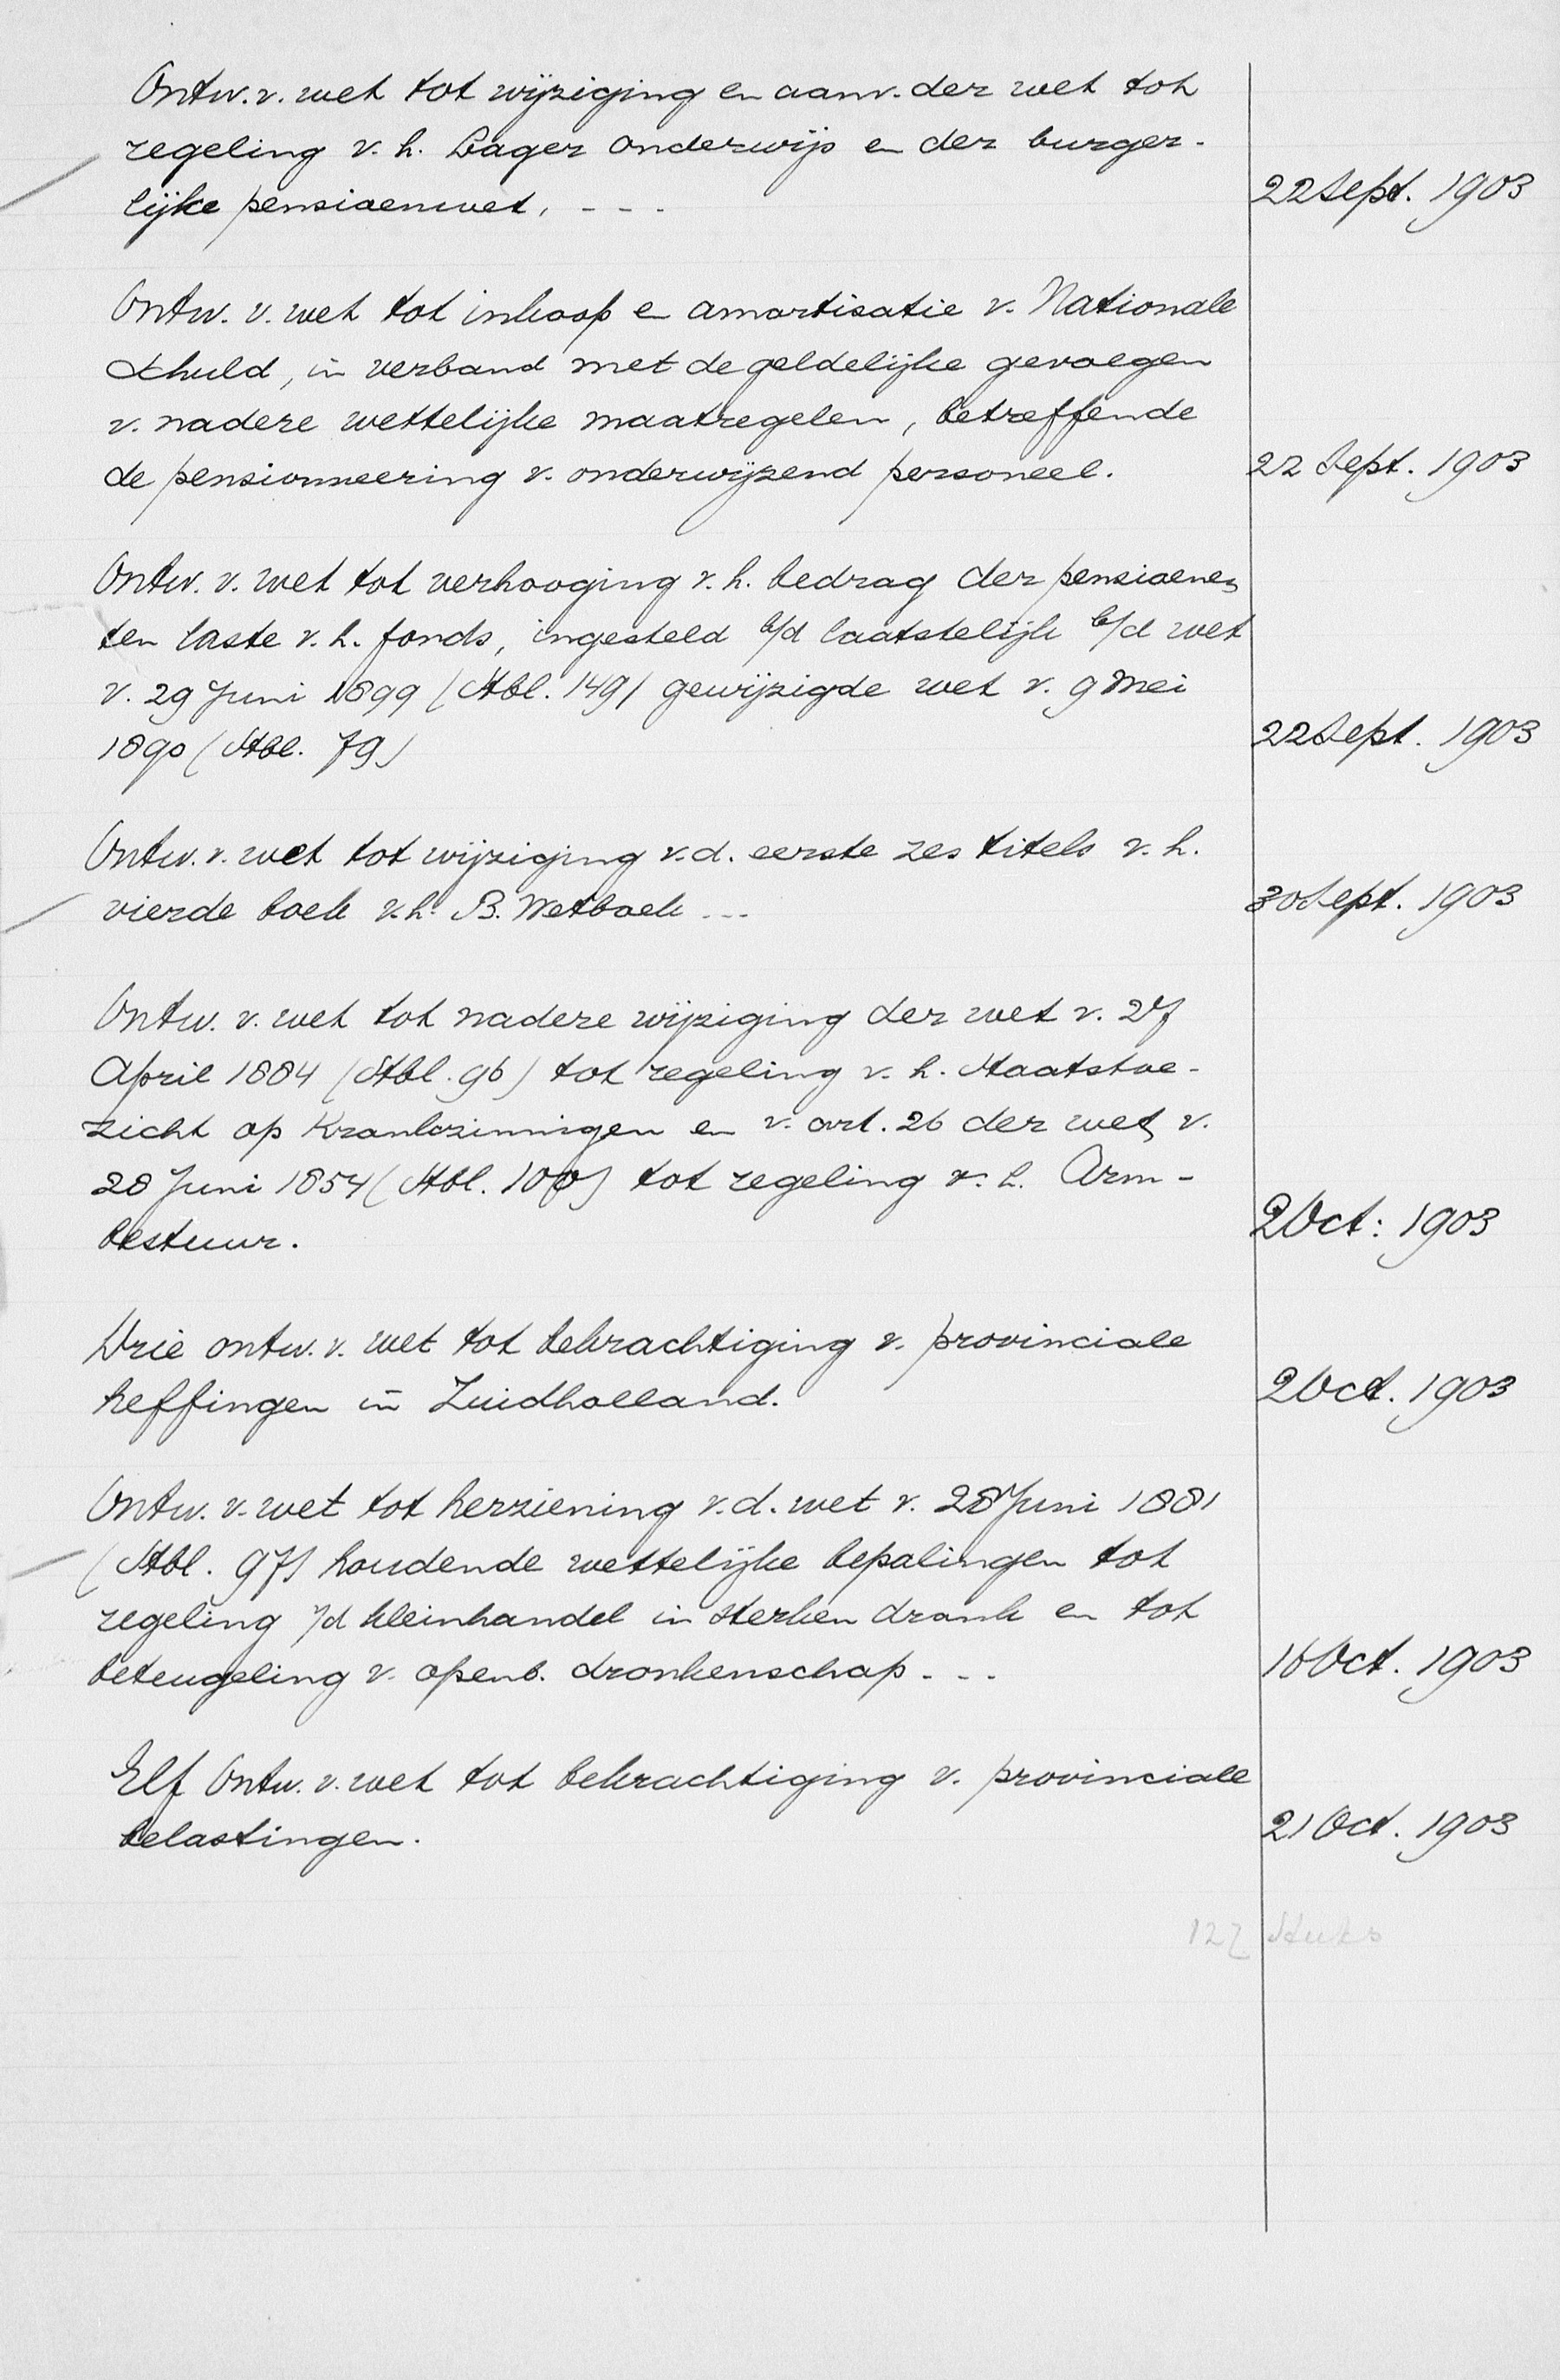 Ontw. v. wet tot wijziging en aanv. der wet tot
regeling v. h. Lager onderwijs en der burger-
lijke pensioenwet, - - -
22 Sept. 1903
Ontw. v. wet tot inkoop en amortisatie v. Nationale
schuld, in verband met de geldelijke gevolgen
v. nadere wettelijke maatregelen, betreffende
de pensionneering v. onderwijzend personeel.
22 Sept. 1903
Ontw. v. wet tot verhooging v. h. bedrag der pensioenen
ten laste v. h. fonds, ingesteld b/d laatstelijk b/d wet
v. 29 Juni 1899 (Stbl. 149) gewijzigde wet v. 9 Mei
1890 (Stbl. 79)
22 Sept. 1903
Ontw. v. wet tot wijziging v. d. eerste zes titels v. h.
vierde boek v. h. B. Wetboek ---
30 Sept. 1903
Ontw. v. wet tot nadere wijziging der wet v. 27
April 1884 (Stbl. 96) tot regeling v. h. Staatstoe-
zicht op Krankzinnigen en v. art. 26 der wet v.
28 Juni 1854 (Stbl. 100) tot regeling v. h. Arm-
bestuur.
2 Oct: 1903
Drie ontw. v. wet tot bekrachtiging v. provinciale
heffingen in Zuidholland.
2 Oct. 1903
Ontw. v. wet tot herziening v. d. wet v. 28 Juni 1881
(Stbl. 97) houdende wettelijke bepalingen tot
regeling v/d kleinhandel in sterken drank en tot
beteugeling v. openb. dronkenschap - - -
16 Oct. 1903
Elf Ontw. v. wet tot bekrachtiging v. provinciale
belastingen.
21 Oct. 1903
127 stuks